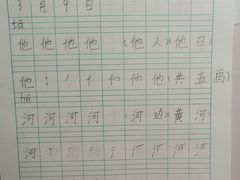 3月9日
tā
他 他 他 他 (他人)(他日)
他: 丿 亻 他 他 他 (共五画)
hé
河 河 河 河 (河边)(黄河)
河: 氵 汀 河 河